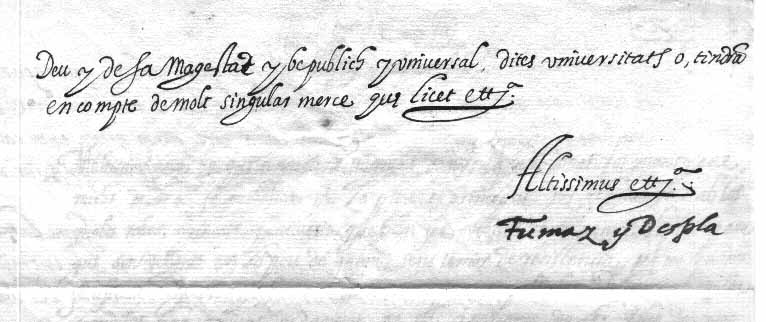 Deu y de sa Magestad y be publich y universal, dites universitats o, tindrã
en compte de molt singular merce que licet ettª.
Altissimus ettª.
Fumaz y Despla